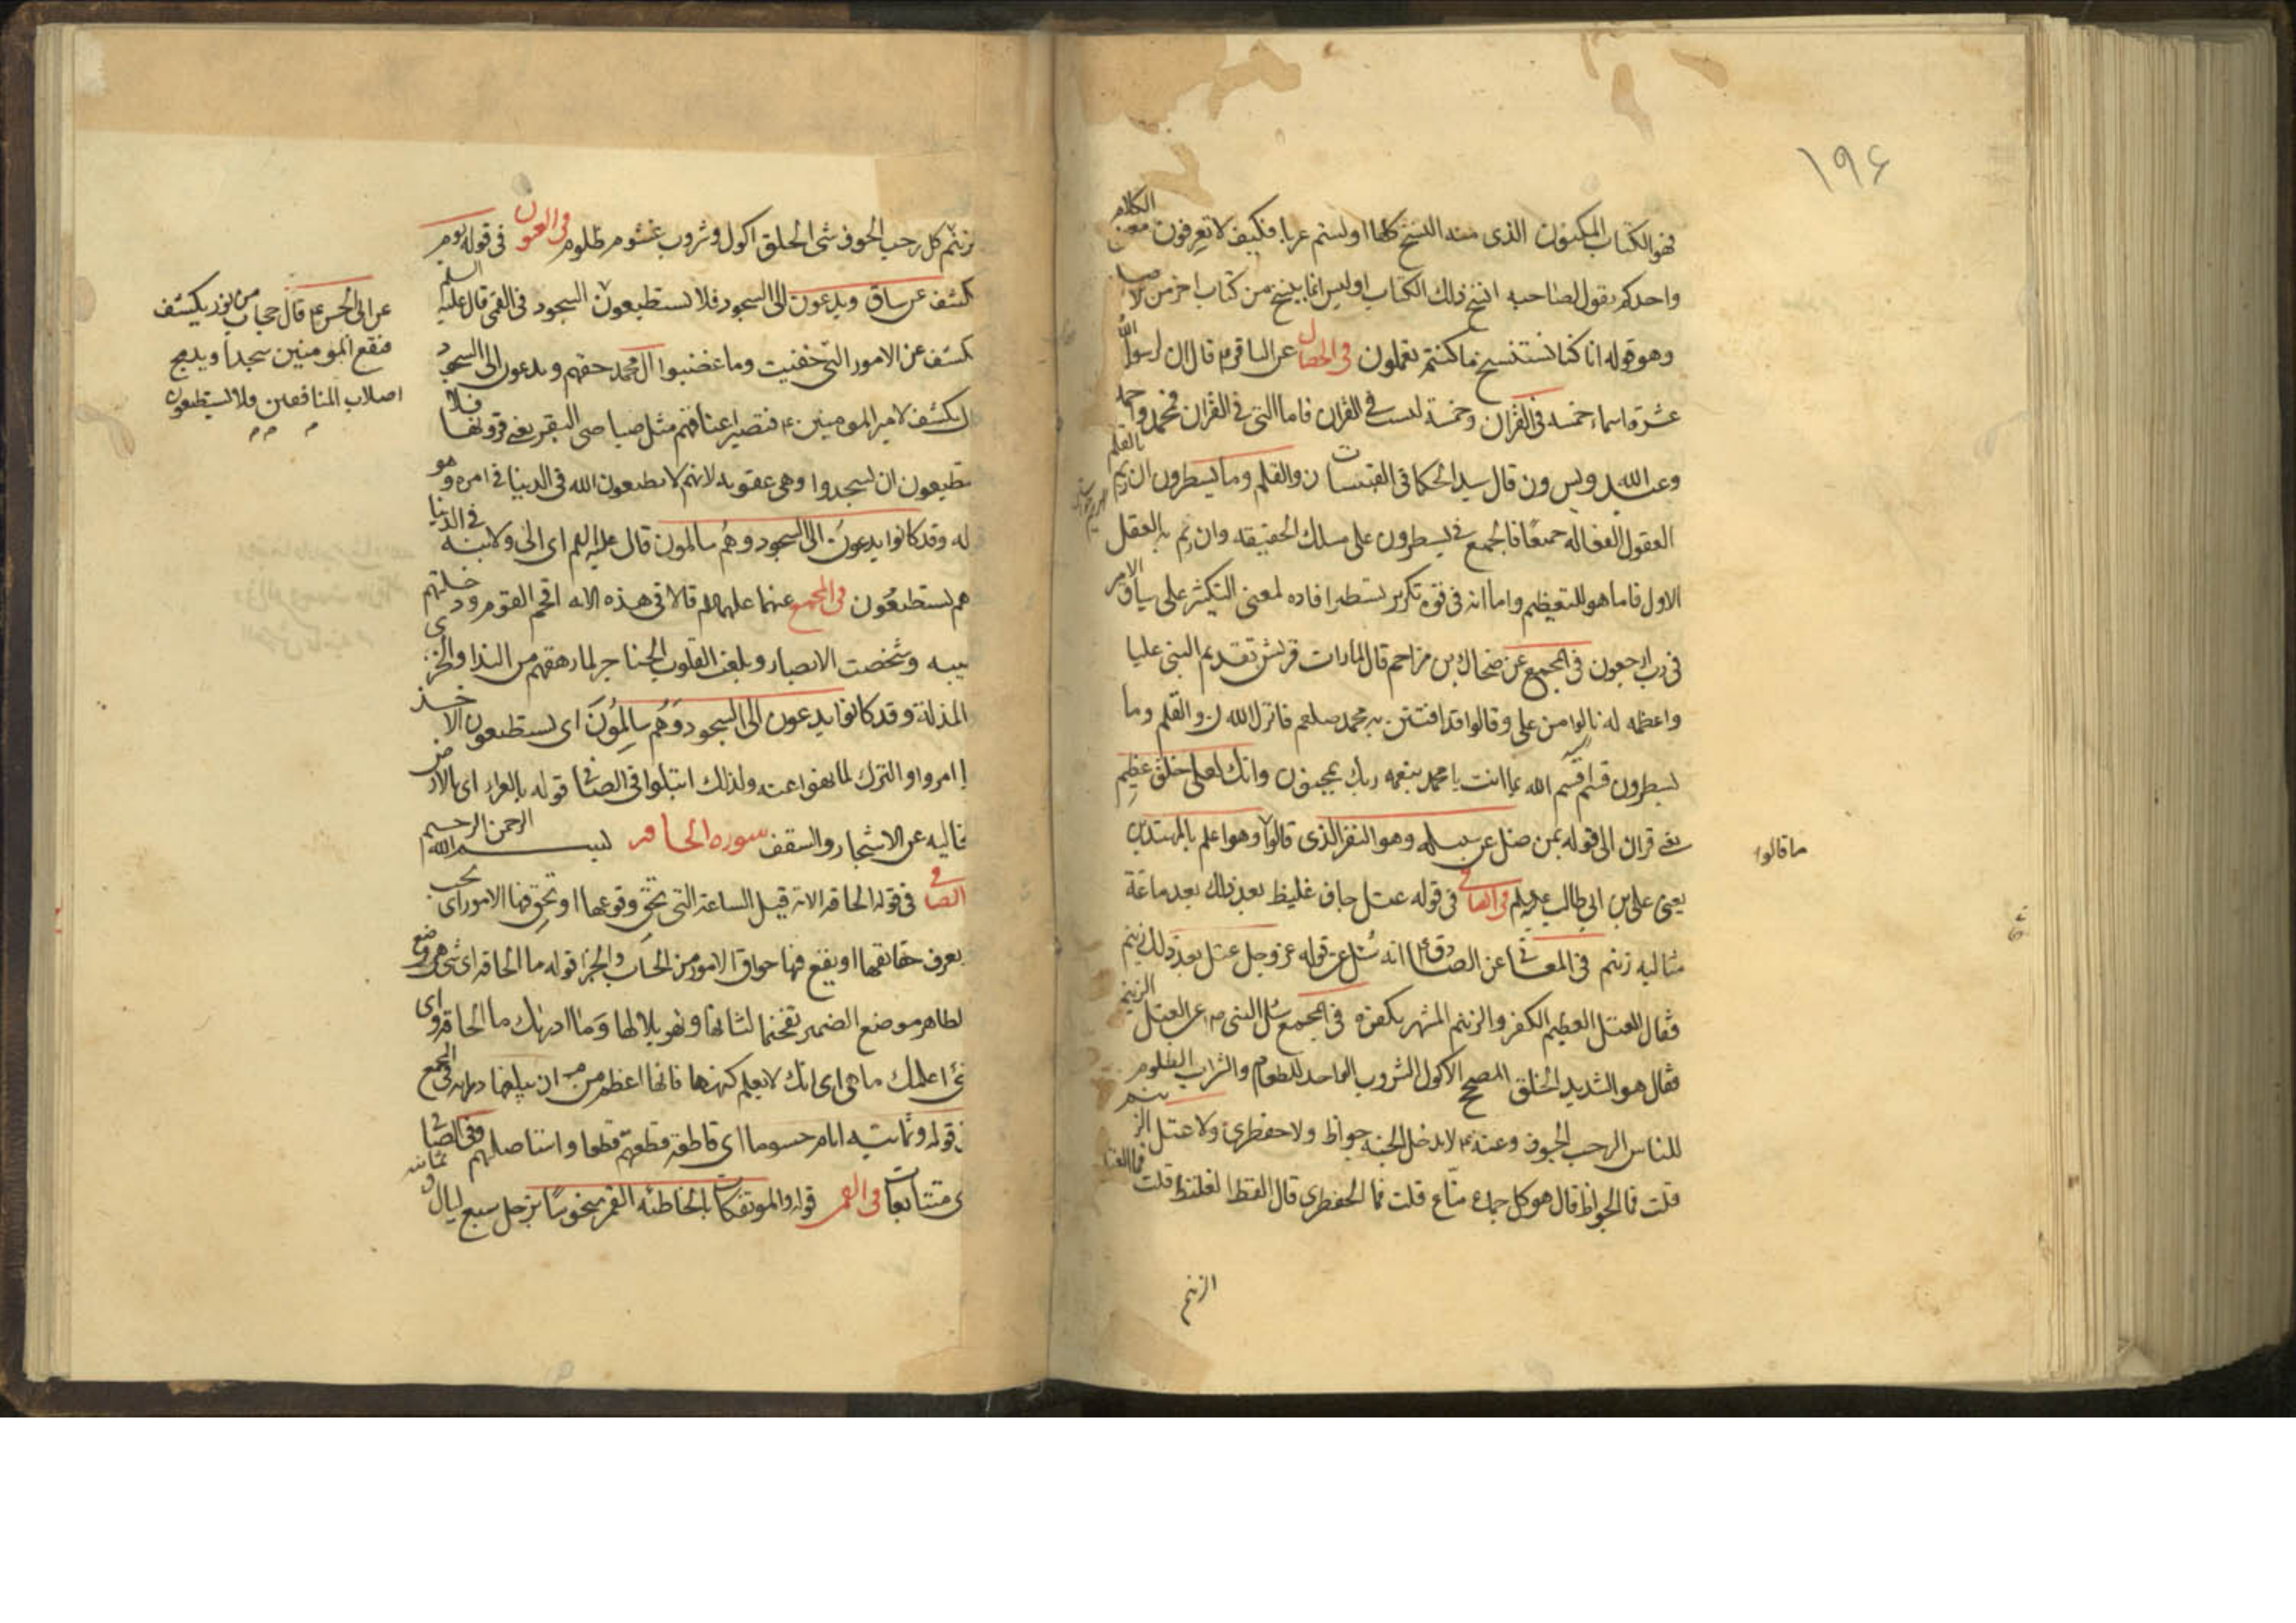 ١٩٤
فهو الكتاب المكنون الذى منه النسخ كلها اولستم عربا فكيف لا تعرفون معنى الكلام
واحدكم يقول لصاحبه انسخ ذلك الكتاب اوليس انما ينسخ من كتاب اخر من الاصل
وهو قوله انا كنا نستنسخ ما كنتم تعملون فى الخصال عن الباقر ع قال ان لرسول الله
عشرة اسماء خمسه فى القران وخمسة ليست فى القران فاما التى فى القران فمحمد واحمد
وعبد الله ويس ون قال سيد الحكما فى القبسات ن والقلم وما يسطرون ان ريم بالقلم
العقول الفعالة جميعا فالجمع فى يسطرون على مسلك الحقيقه وان ريم به العقل
الاول فاما هو للتعظيم واما انه فى قوة تكرير يسطر افاده لمعنى التكثر على سياق الامر
فى رب ارجعون فى المجمع عن ضحاك بن مزاحم قال لما رات قريش تقديم النبى عليا
واعظمه له نالوا من على وقالوا قد افتتن به محمد صلعم فانزل الله ن والقلم وما
يسطرون قسم اقسم الله به ما انت يا محمد بنعمه ربك بمجنون وانك لعلى خلق عظيم
يعنى قران الى قوله بمن ضل عن سبيله وهو النفر الذى قالوا وهو اعلم بالمهتدين
ما قالوا
يعنى على بن ابى طالب عليه السلم فى الصافى فى قوله عتل جاف غليظ بعد ذلك بعد ما عد
مثالبه زنيم فى المعانى عن الصادق ع انه سئل عن قوله عز وجل عتل بعد ذلك زنيم
فقال العتل العظيم الكفر والزنيم المشهر بكفره فى المجمع سئل النبى ص عن العتل الزنيم
فقال هو الشديد الخلق المصحح الاكول الشروب الواحد للطعام والشراب الظلوم
للناس الرحب الجوف وعنه ع لا يدخل الجنه جواظ ولا جعظرى ولا عتل الزنيم
قلت فما الجواظ قال هو كل جماع مناع قلت فما الجعظرى قال الفظ الغليظ قلت فما العتل
الزنيم
زنيم كل رحب الجوف شئ الخلق اكول وشروب غشوم ظلوم فى العيون فى قوله يوم
يكشف عن ساق ويدعون الى السجود فلا يستطيعون السجود فى القمى قال عليه السلم
يكشف عن الامور التى خفيت وما غضبوا ال محمد حقهم ويدعون الى السجود
قال يكشف لامير المومنين ع فتصير اعناقهم مثل صياصى البقر يعنى قرونها فلا
يستطيعون ان يسجدوا وهى عقوبه لانهم لا يطيعون الله فى الدنيا فى امره وهو
قوله وقد كانوا يدعون الى السجود وهم سالمون قال عليه السلم اى الى ولايته فى الدنيا
وهم يستطيعون فى المجمع عنهما عليهما السلم قالا فى هذه الايه افحم القوم ودخلتهم
الهيبه وشخصت الابصار وبلغت القلوب الحناجر لما رهقهم من الندا والخزى
والمذلة وقد كانوا يدعون الى السجود وهم سالمون اى يستطيعون الاخذ
بما امروا والترك لما نهوا عنه ولذلك ابتلوا فى الصافى قوله بالعراء اى بالارض
الخاليه عن الاشجار والسقف سوره الحاقه بسم الله الرحمن الرحيم
فى الصافى فى قوله الحاقه الايه قيل الساعة التى يحق وقوعها او تحق فيها الامور اى يجب
يعرف حقايقها او يقع فيها حواق الامور من الحساب والجزا قوله ما الحاقه اى شئ هى وضع
الظاهر موضع الضمير تفخيما لشانها وتهويلا لها وما ادراك ما الحاقه واى
شئ اعلمك ما هى اى انك لا تعلم كنهها فانها اعظم من ان يبلغها درايه فى المجمع
فى قوله وثمانيه ايام حسوما اى قاطعة قطعتهم قطعا واستاصلهم وفى الصافى
اى متتابعات فى القمى قوله والموتفكات بالخاطئه القمر بنحوسا بزحل سبع ليال وثمانيه
عن ابى الحسن ع قال حجاب من نور يكشف
فيقع المومنين سجدا ويدمج
اصلاب المنافقين فلا يستطيعون